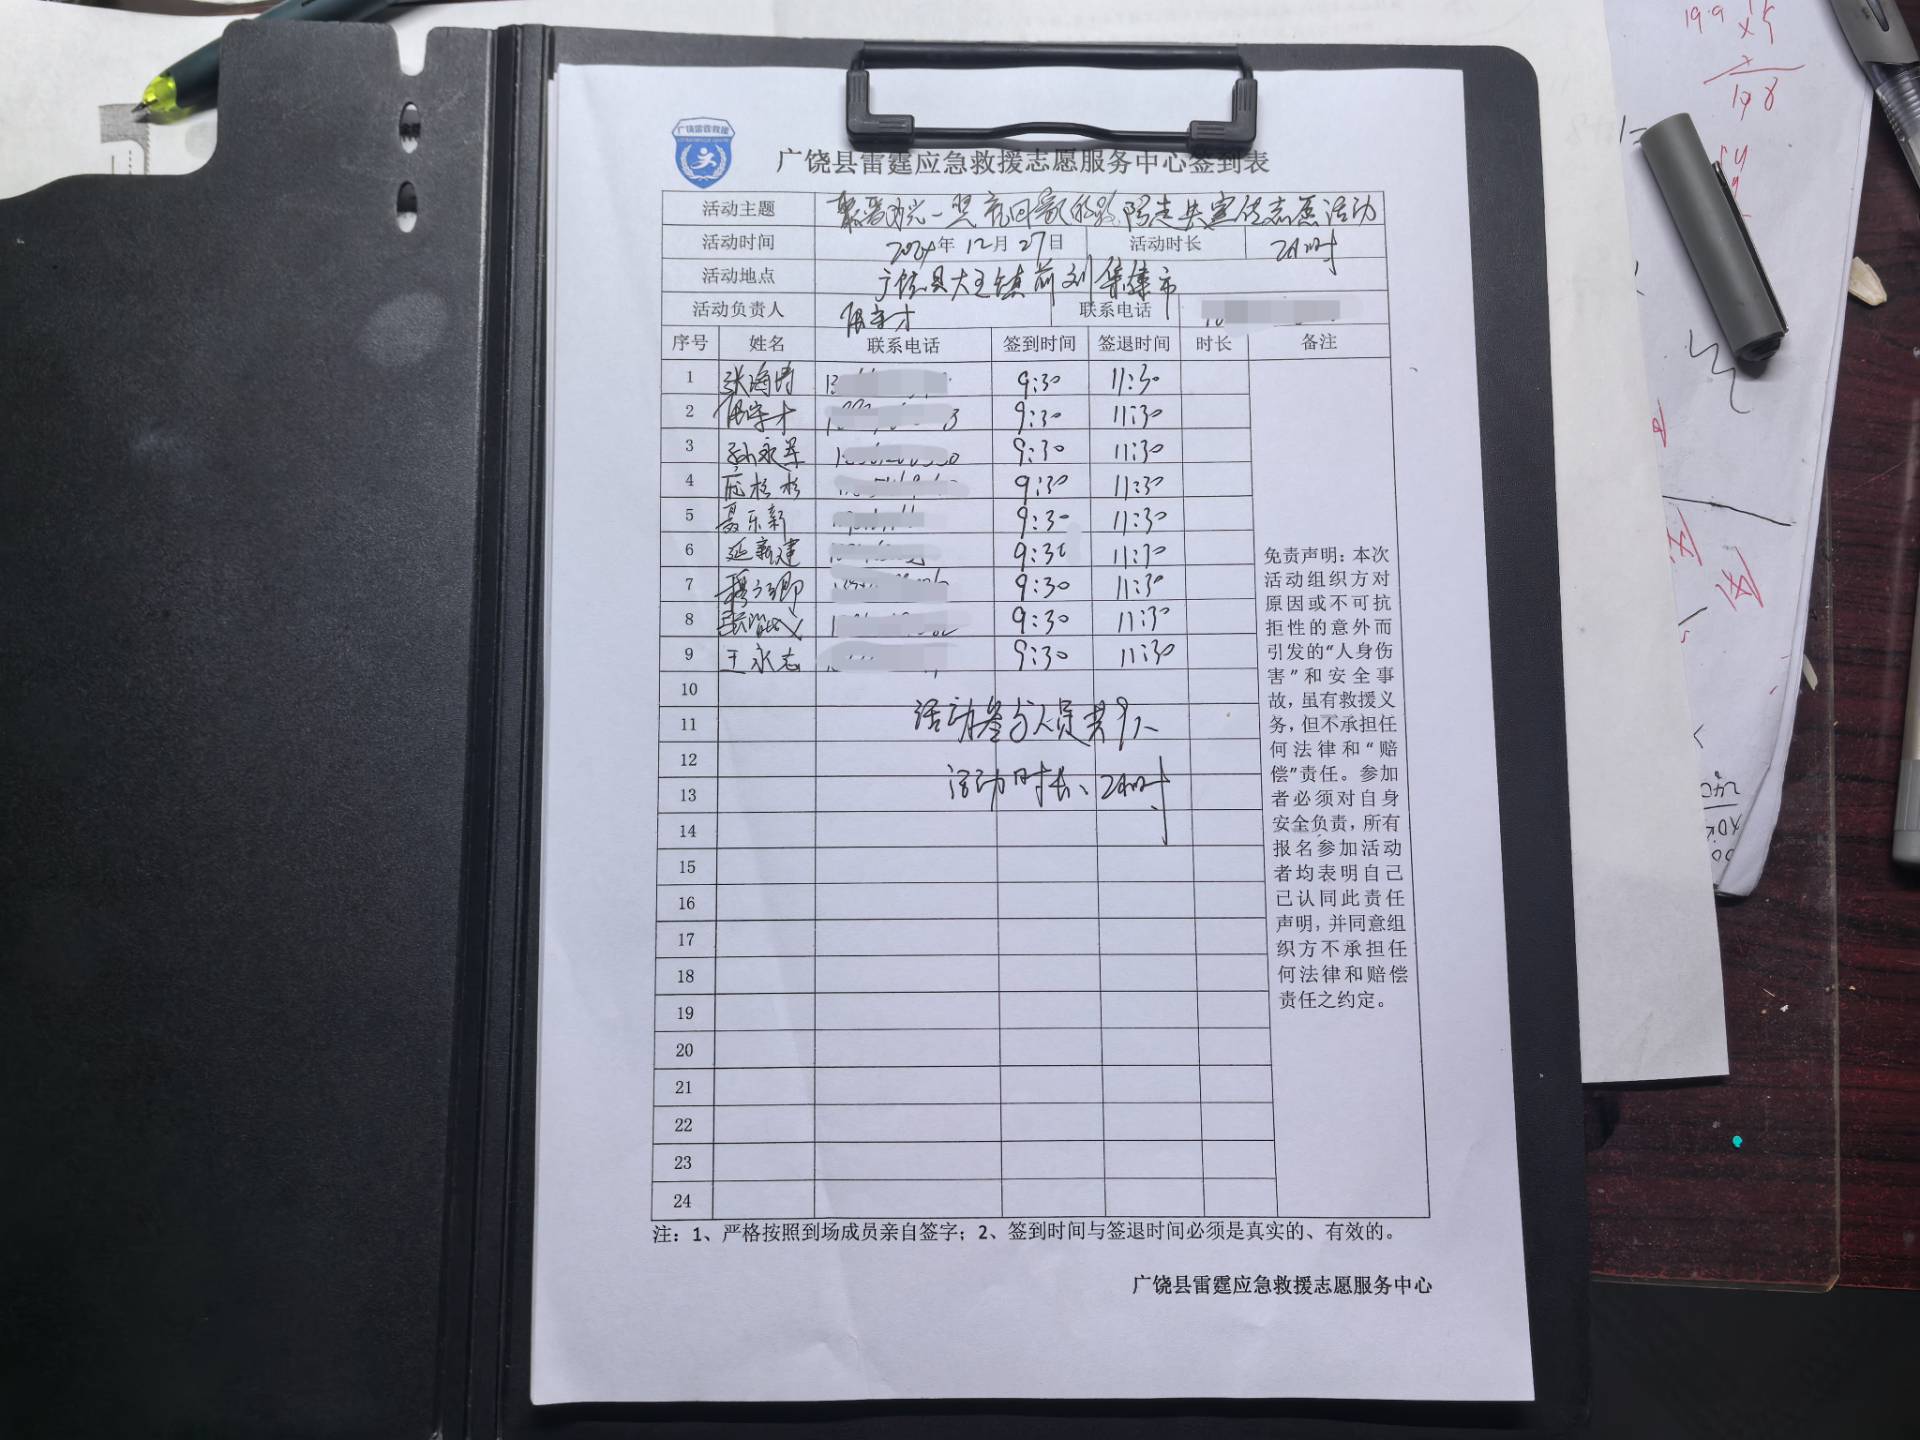 广饶雷霆救援
广饶县雷霆应急救援志愿服务中心签到表
活动主题 志愿活动
活动时间 2024年12月27日 活动时长 2小时
活动地点 广饶县大王镇前刘集集市
活动负责人 联系电话
序号 姓名 联系电话 签到时间 签退时间 时长 备注
1 张海博 9:30 11:30
2 9:30 11:30
3 孙永军 9:30 11:30
4 9:30 11:30
5 聂乐新 9:30 11:30
6 延新建 9:30 11:30
7 9:30 11:30
8 9:30 11:30
9 王永志 9:30 11:30
10
11 活动参与人员共9人
12
13 活动时长、2小时
14
15
16
17
18
19
20
21
22
23
24
免责声明：本次
活动组织方对
原因或不可抗
拒性的意外而
引发的“人身伤
害”和安全事
故，虽有救援义
务，但不承担任
何法律和“赔
偿”责任。参加
者必须对自身
安全负责，所有
报名参加活动
者均表明自己
已认同此责任
声明，并同意组
织方不承担任
何法律和赔偿
责任之约定。
注：1、严格按照到场成员亲自签字；2、签到时间与签退时间必须是真实的、有效的。
广饶县雷霆应急救援志愿服务中心